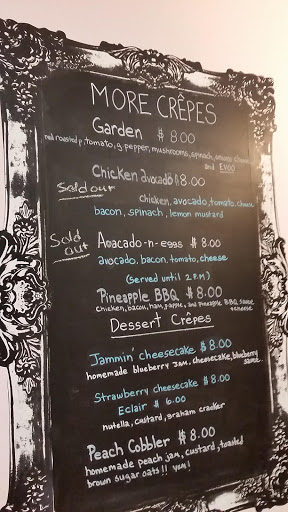 MORE CRÊPES
Garden $ 8.00
red roasted p, tomato, g. pepper, mushrooms, spinach, onions, cheese
and EVOO
Chicken avocado $ 8.00
Sold out
chicken, avocado, tomato, cheese
bacon, spinach, lemon mustard
Sold out
Avacado-n-eggs $ 8.00
avocado, bacon, tomato, cheese
(Served until 2 P.M)
Pineapple BBQ $ 8.00
Chicken, bacon, ham, pineapple, and pineapple BBQ sauce
+ cheese
Dessert Crêpes
Jammin' cheesecake $ 8.00
homemade blueberry jam, cheesecake, blueberry
sauce
Strawberry cheesecake $ 8.00
Eclair $ 6.00
nutella, custard, graham cracker
Peach Cobbler $ 8.00
homemade peach jam, custard, toasted
brown sugar oats!! yum!